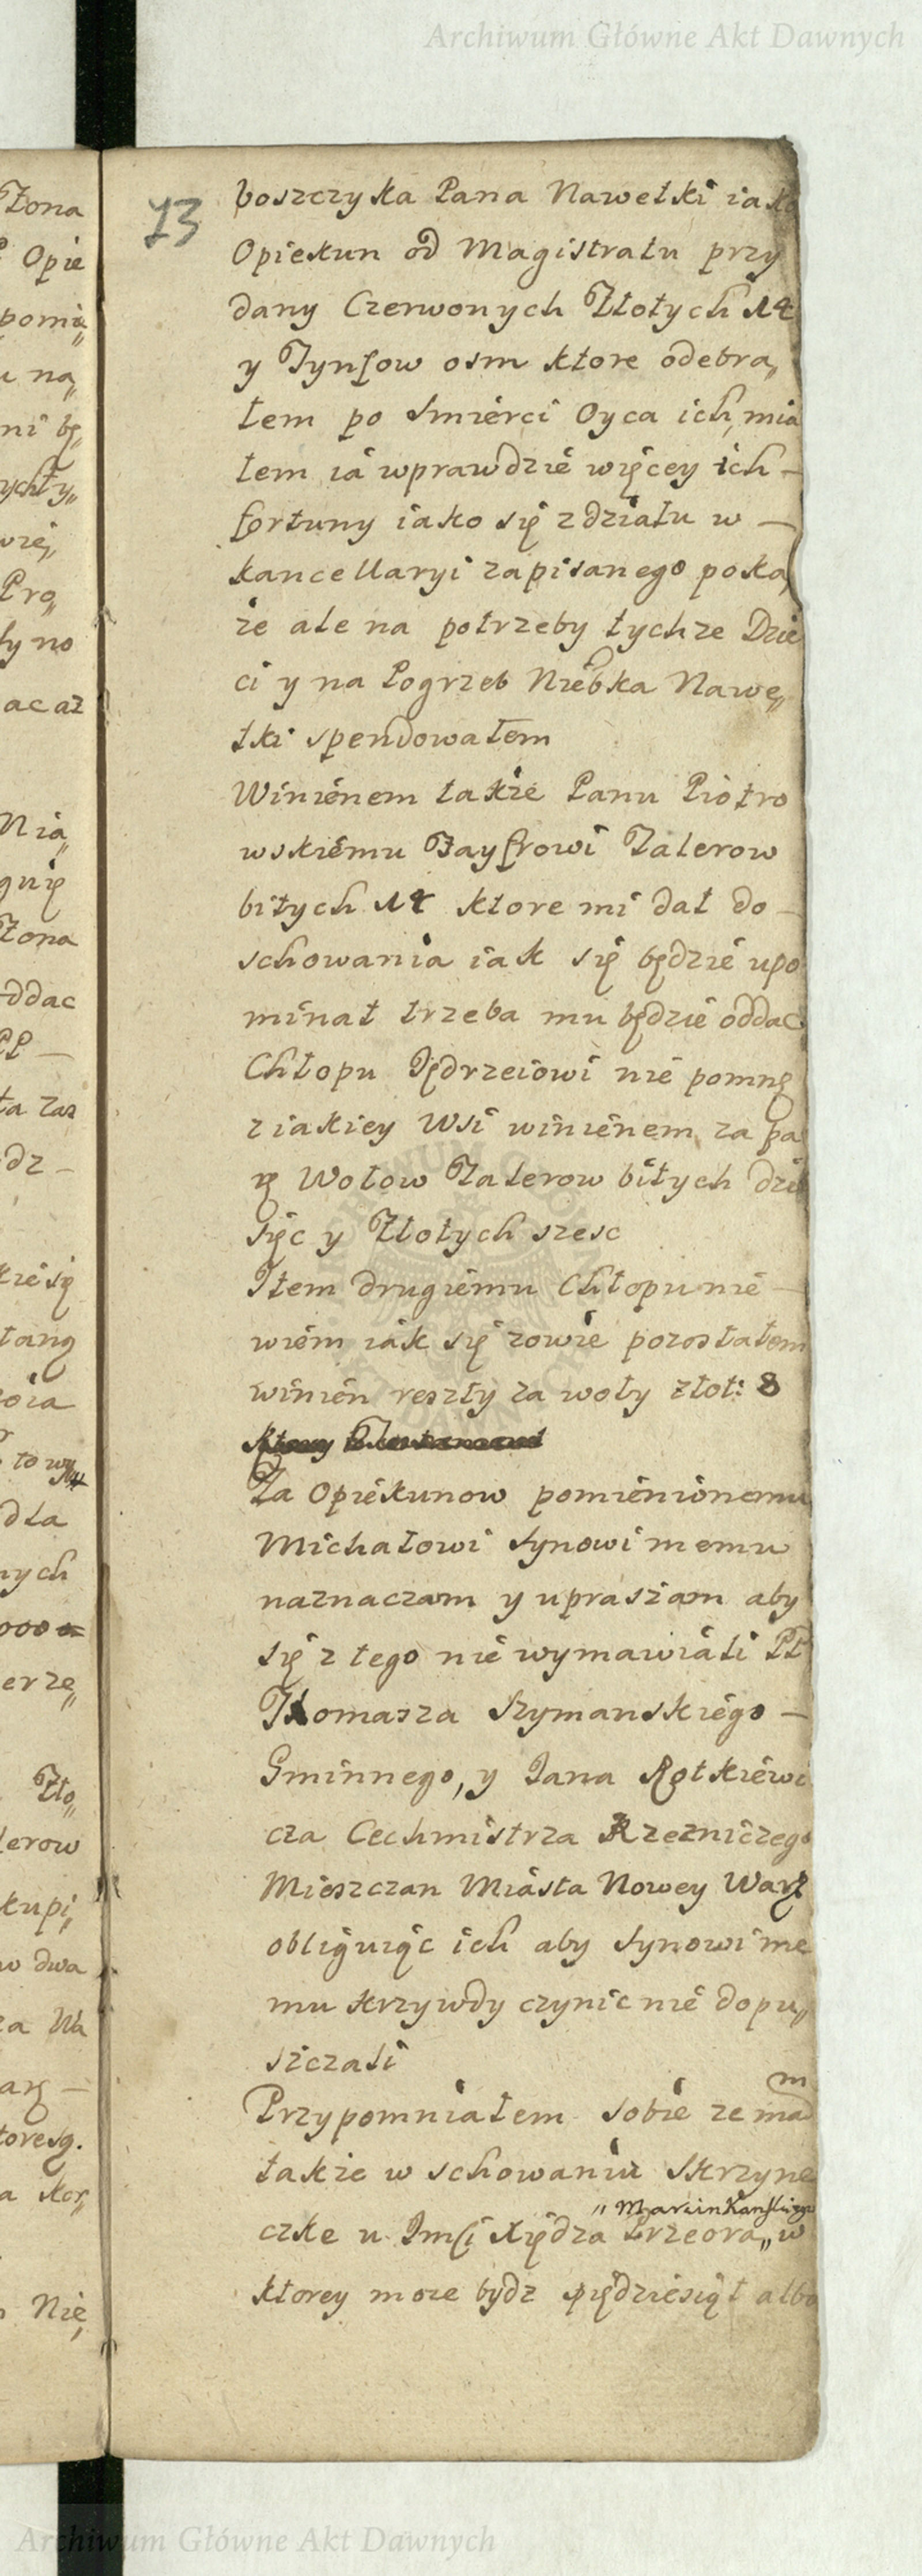 Archiwum Główne Akt Dawnych
73
boszczyka Pana Nawełki iako
Opiekun od Magistratu przy
dany Czerwonych Złotych 14
y Tynfow osm ktore odebra„
łem po Smierci Oyca ich, mia
łem ia wprawdzie więcey ich —
fortuny iako się z działu w —
kancellaryi zapisanego poka„
że ale na potrzeby tychże Dzie
ci y na Pogrzeb Niebka Nawe„
łki spendowałem
Winienem także Panu Piotro
wskiemu Fayfrowi Talerow
bitych 14 ktore mi dał do —
schowania iak się będzie upo
minał trzeba mu będzie oddac
Chłopu Jędrzeiowi nie pomnę
z iakiey Wsi winienem za pa
rę Wołow Talerow bitych dzie
sięc y Złotych szesc
Item drugiemu Chłopu nie —
wiem iak się zowie pozostałem
winien reszty za woły złot: 8
Za Opiekunow pomienionemu
Michałowi Synowi memu
naznaczam y upraszam aby
się z tego nie wymawiali PP
Thomasza Szymanskiego —
Gminnego, y Jana Rotkiewi
cza Cechmistrza Rzezniczego
Mieszczan Miasta Nowey Warz
obliguiąc ich aby Synowi me
mu krzywdy czynic nie dopu„
szczali
Przypomniałem sobie ze mam
także w schowaniu Skrzyne
czke u Imci Xiędza Przeora „ Marcin Kanskiego „ w
ktorey może bydz piędziesiąt albo
Archiwum Główne Akt Dawnych